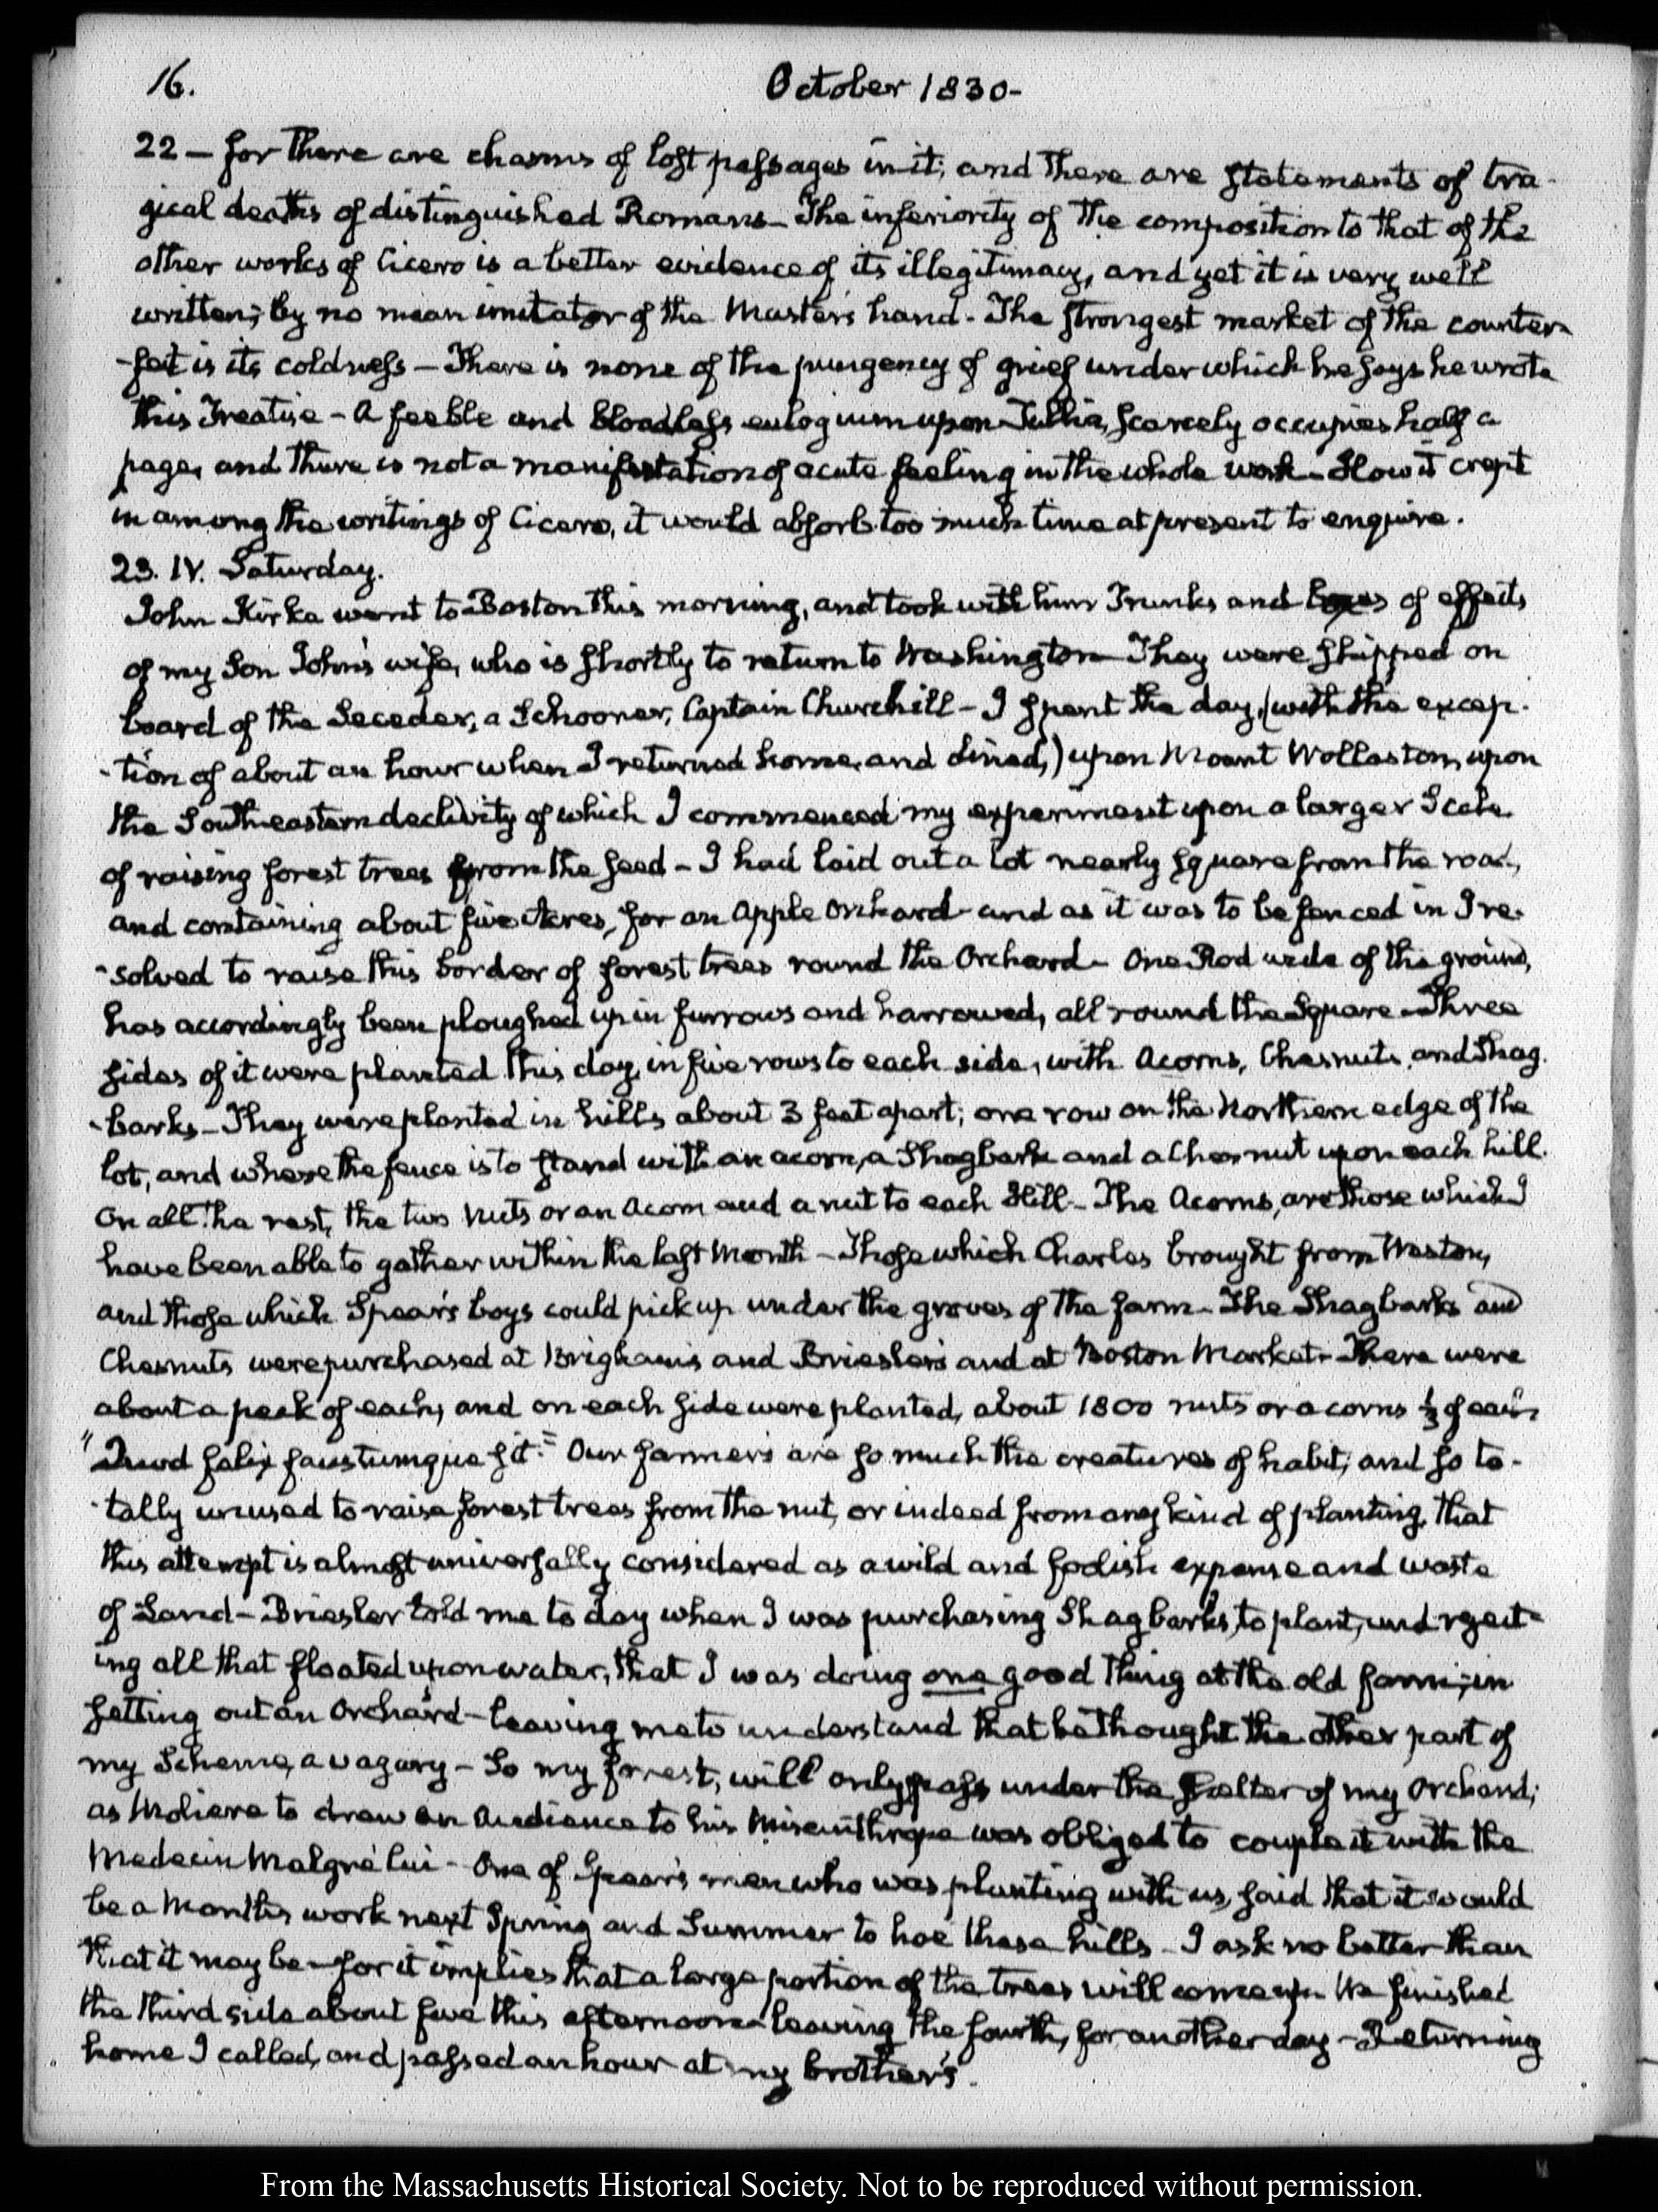 16.
October 1830-
22 — for there are chasms of lost passages in it; and there are statements of tra-
gical deaths of distinguished Romans - The inferiority of the composition to that of the
other works of Cicero is a better evidence of its illegitimacy, and yet it is very well
written; by no mean imitator of the Master's hand - The strongest market of the counter-
-feit is its coldness - There is none of the pungency of grief under which he says he wrote
this Treatise - A feeble and bloodless eulogium upon Tullia, scarcely occupies half a
page, and there is not a manifestation of acute feeling in the whole work - How it crept
in among the writings of Cicero, it would absorb too much time at present to enquire.
23. IV. Saturday.
John Kirke went to Boston this morning, and took with him Trunks and boxes of effects
of my Son John's wife, who is shortly to return to Washington - They were shipped on
board of the Seceder, a Schooner, Captain Churchill - I spent the day, (with the excep-
-tion of about an hour when I returned home, and dined,) upon Mount Wollaston, upon
the South-eastern declivity of which I commenced my experiment upon a larger Scale
of raising forest trees from the seed - I had laid out a lot nearly square from the road,
and containing about five Acres, for an Apple Orchard - and as it was to be fenced in I re-
-solved to raise this border of forest trees round the Orchard - One Rod wide of the ground,
has accordingly been ploughed up in furrows and harrowed, all round the Square - Three
sides of it were planted this day, in five rows to each side, with Acorns, Chesnuts, and Shag-
-barks - They were planted in hills about 3 feet apart; one row on the Northern edge of the
lot, and where the fence is to stand with an acorn, a Shagbark and a Chesnut upon each hill.
On all the rest, the two Nuts or an Acorn and a nut to each Hill - The Acorns, are those which I
have been able to gather within the last Month - Those which Charles brought from Weston,
and those which Spear's boys could pick up under the groves of the farm - The Shagbarks and
Chesnuts were purchased at Brigham's and Briesler's and at Boston Market - There were
about a peck of each, and on each side were planted, about 1800 nuts or acorns ⅓ of each
"Quod felix faustumque sit." Our farmers are so much the creatures of habit, and so to-
-tally unused to raise forest trees from the nut, or indeed from any kind of planting, that
this attempt is almost universally considered as a wild and foolish expense and waste
of Land - Briesler told me to day when I was purchasing Shagbarks, to plant, and reject-
ing all that floated upon water, that I was doing one good thing at the old farm; in
setting out an Orchard - leaving me to understand that he thought the other part of
my Scheme, a vagary - So my forest, will only pass under the shelter of my Orchard;
as Moliere to draw an Audience to his Misanthrope was obliged to couple it with the
Medecin Malgré lui - One of Spear's men who was planting with us, said that it would
be a Month's work next Spring and Summer to hoe these hills - I ask no better than
that it may be - for it implies that a large portion of the trees will come up - We finished
the third side about five this afternoon - leaving the fourth, for another day - Returning
home I called, and passed an hour at my brother's.
From the Massachusetts Historical Society. Not to be reproduced without permission.